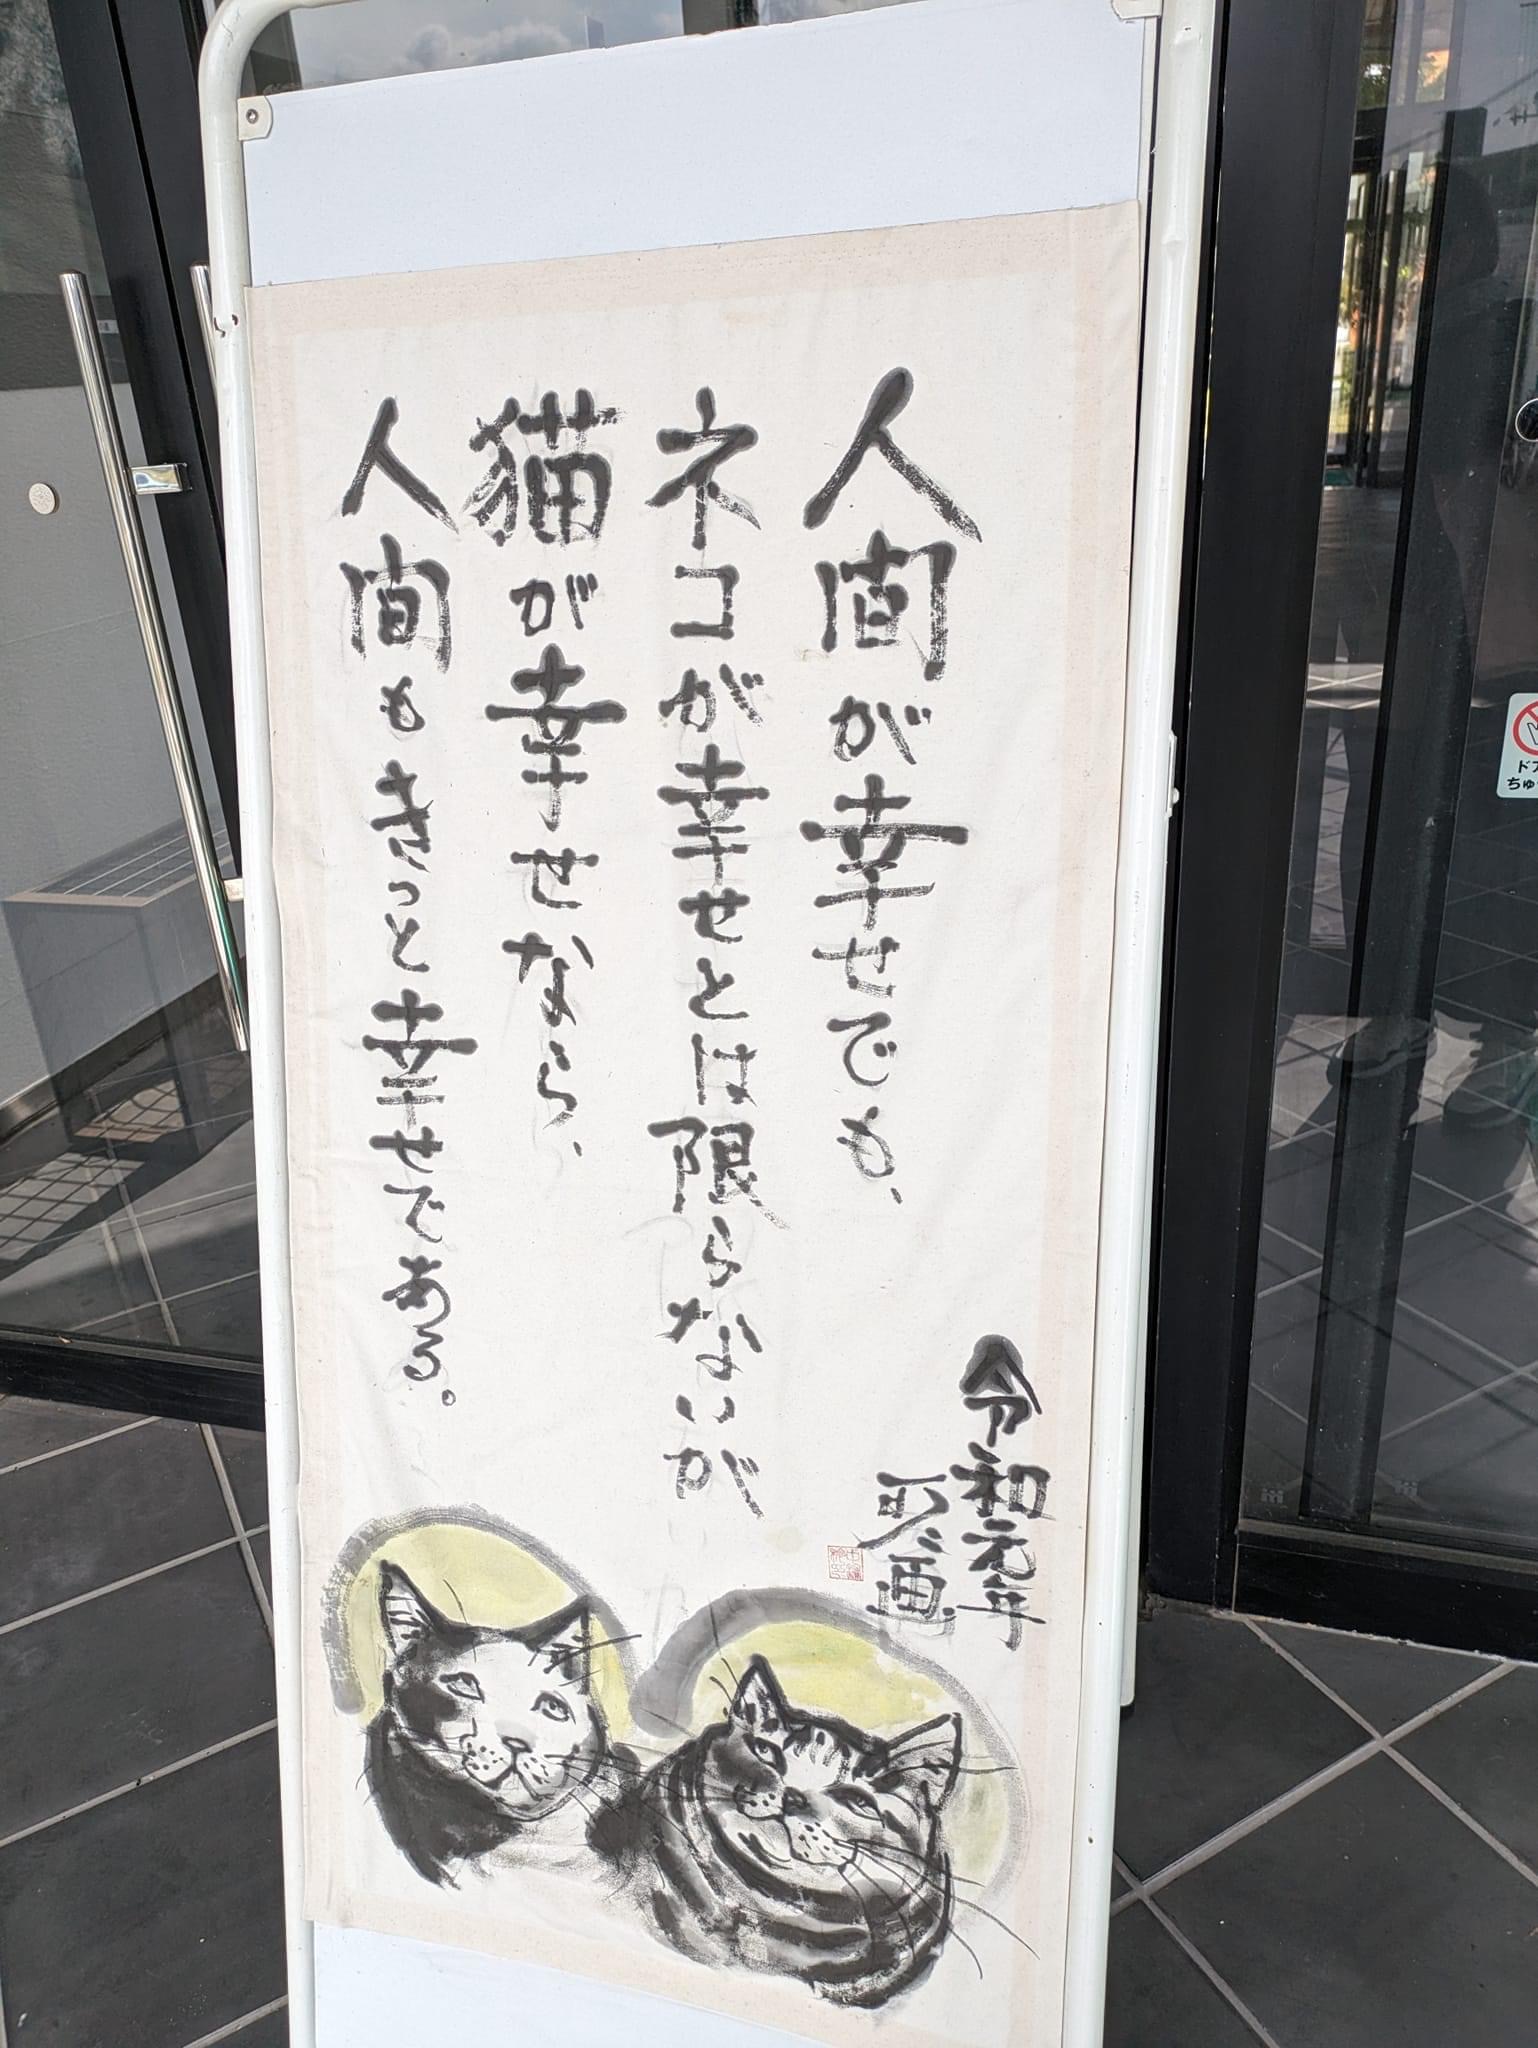 人間が幸せでも、
ネコが幸せとは限らないが
猫が幸せなら、
人間もきっと幸せである。
令和元年
画
ドア
ちゅ